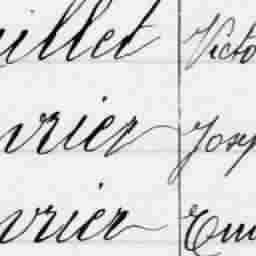 uillet Victo
vrier Josp
vrier Em